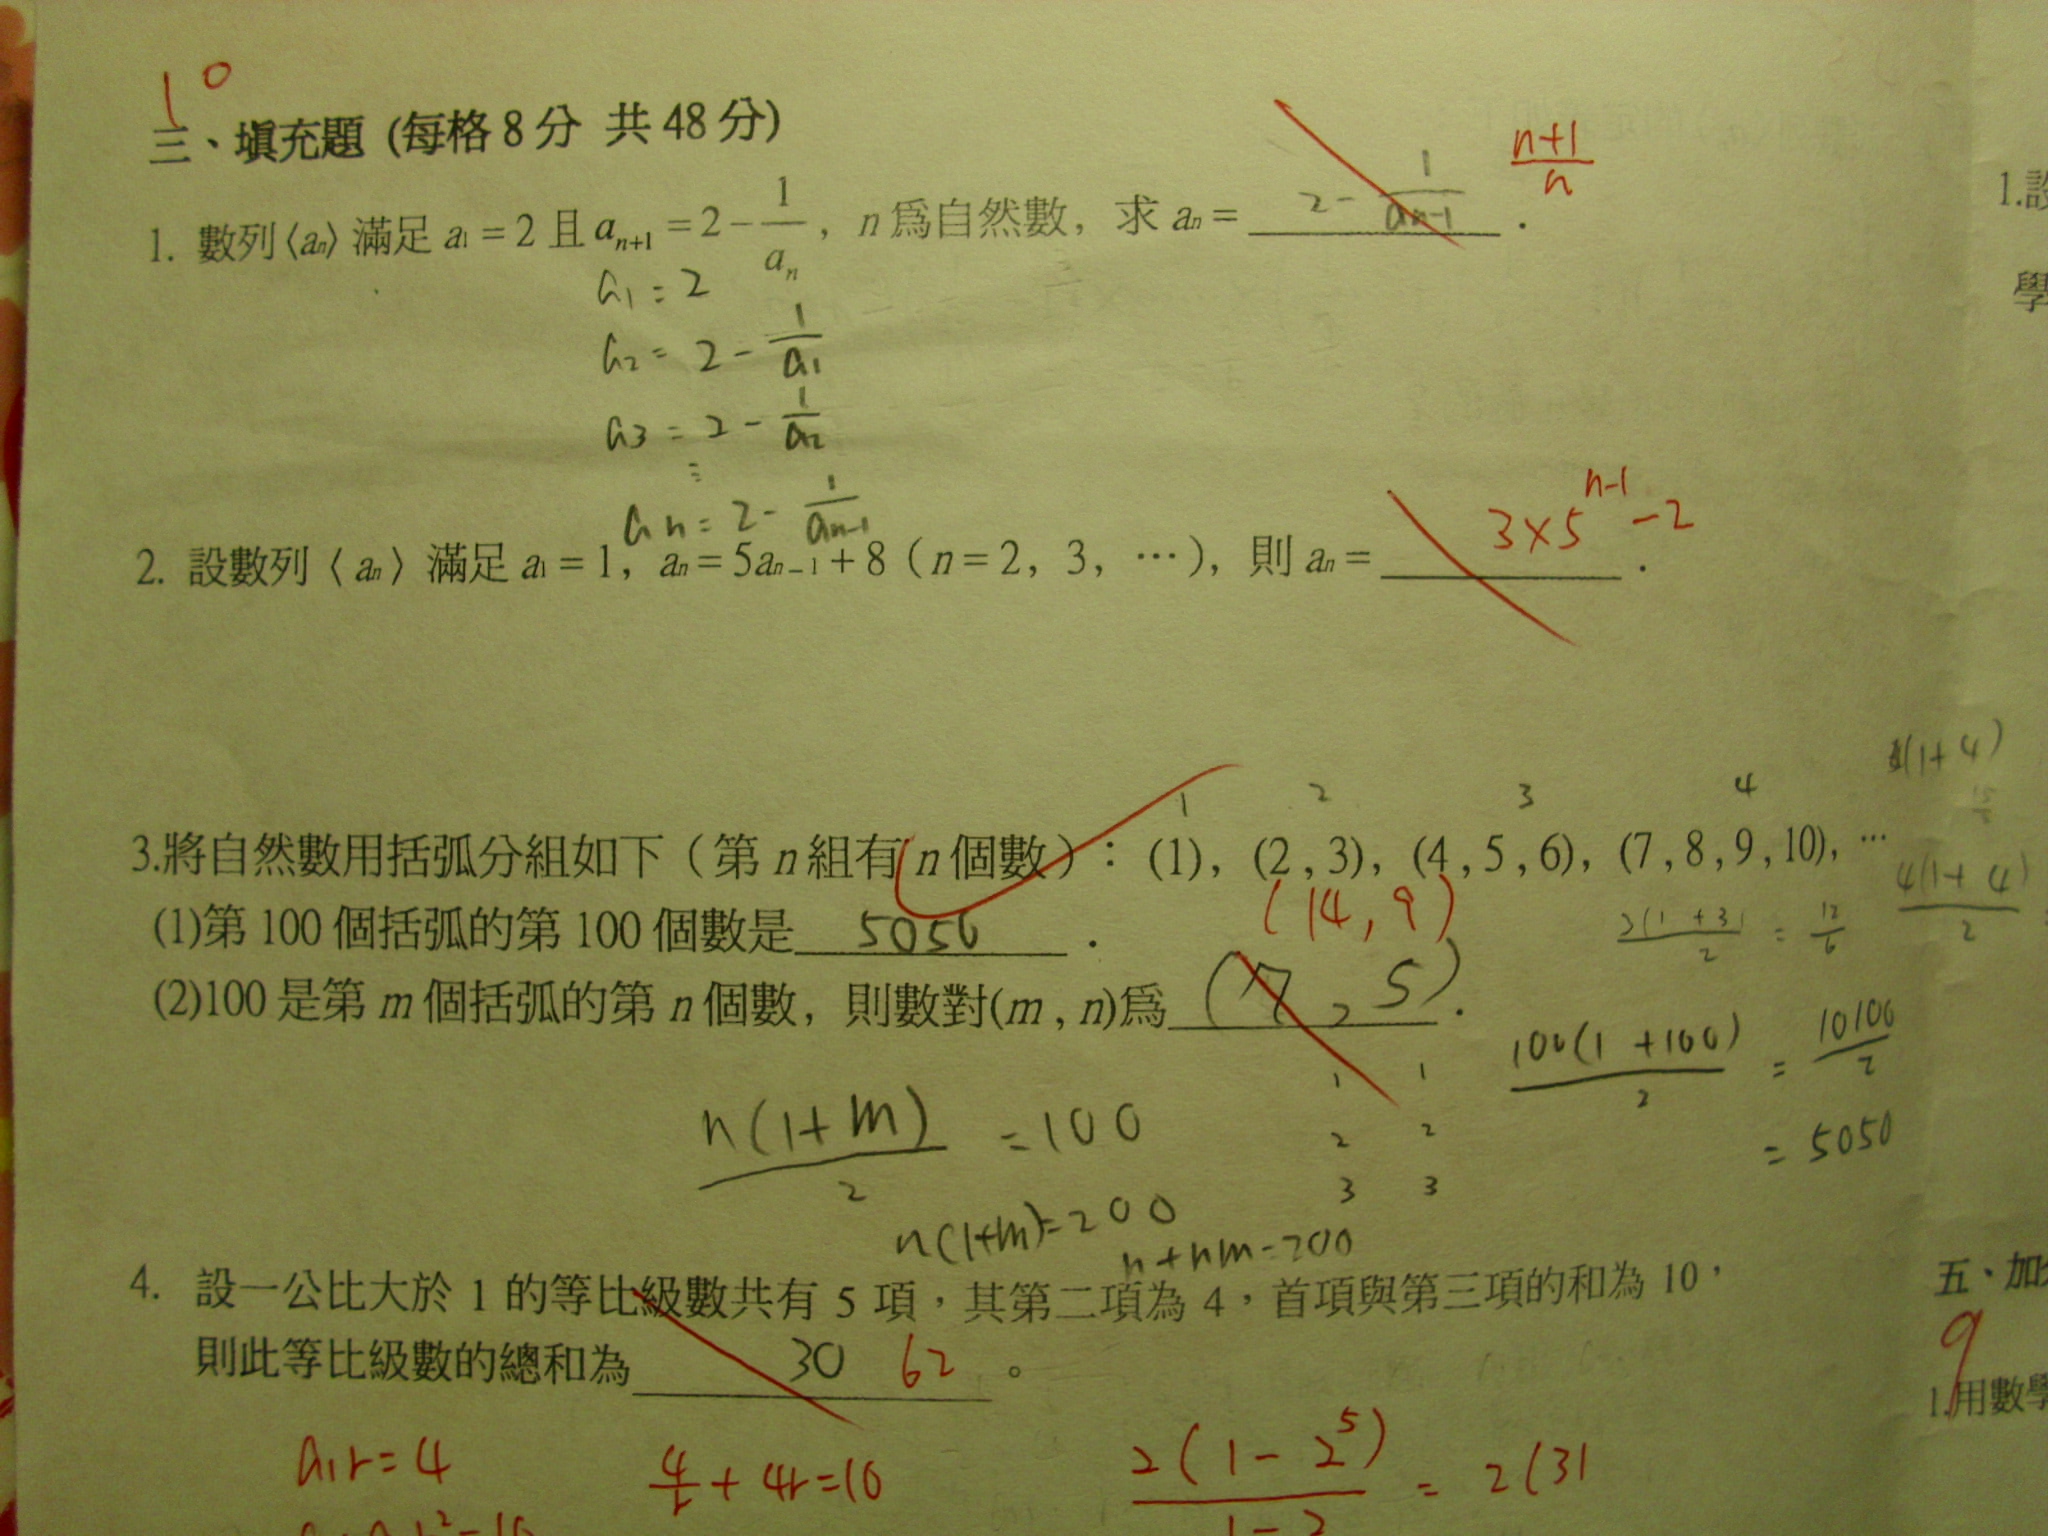 10
三、填充題 (每格8分 共48分)
1. 數列⟨an⟩滿足 a1 = 2 且 an+1 = 2 − 1/an , n 為自然數, 求 an = 2 − 1/an-1 . n+1/n
a1 = 2
a2 = 2 − 1/a1
a3 = 2 − 1/a2
⋮
an = 2 − 1/an-1
2. 設數列〈an〉滿足 a1 = 1, an = 5an−1 + 8 (n = 2, 3, ⋯), 則 an = 3×5^n-1 −2 .
1 2 3 4
3.將自然數用括弧分組如下（第 n 組有 n 個數）: (1), (2,3), (4,5,6), (7,8,9,10), ⋯
(1)第 100 個括弧的第 100 個數是 5050 .
(14, 9)
(2)100 是第 m 個括弧的第 n 個數, 則數對(m , n)為 (7, 5) .
(1+4)
4(1+4)/2
2(1+3)/2 = 12/6
100(1+100)/2 = 10100/2
= 5050
1 1
2 2
3 3
n(1+m)/2 = 100
n(1+m)=200
n+nm=200
4. 設一公比大於 1 的等比級數共有 5 項，其第二項為 4，首項與第三項的和為 10，
則此等比級數的總和為 30 62 。
a1r=4
4/r + 4r=10
2(1−2^5)/1−2 = 2(31
1.設
學
五、加
9
1.用數學